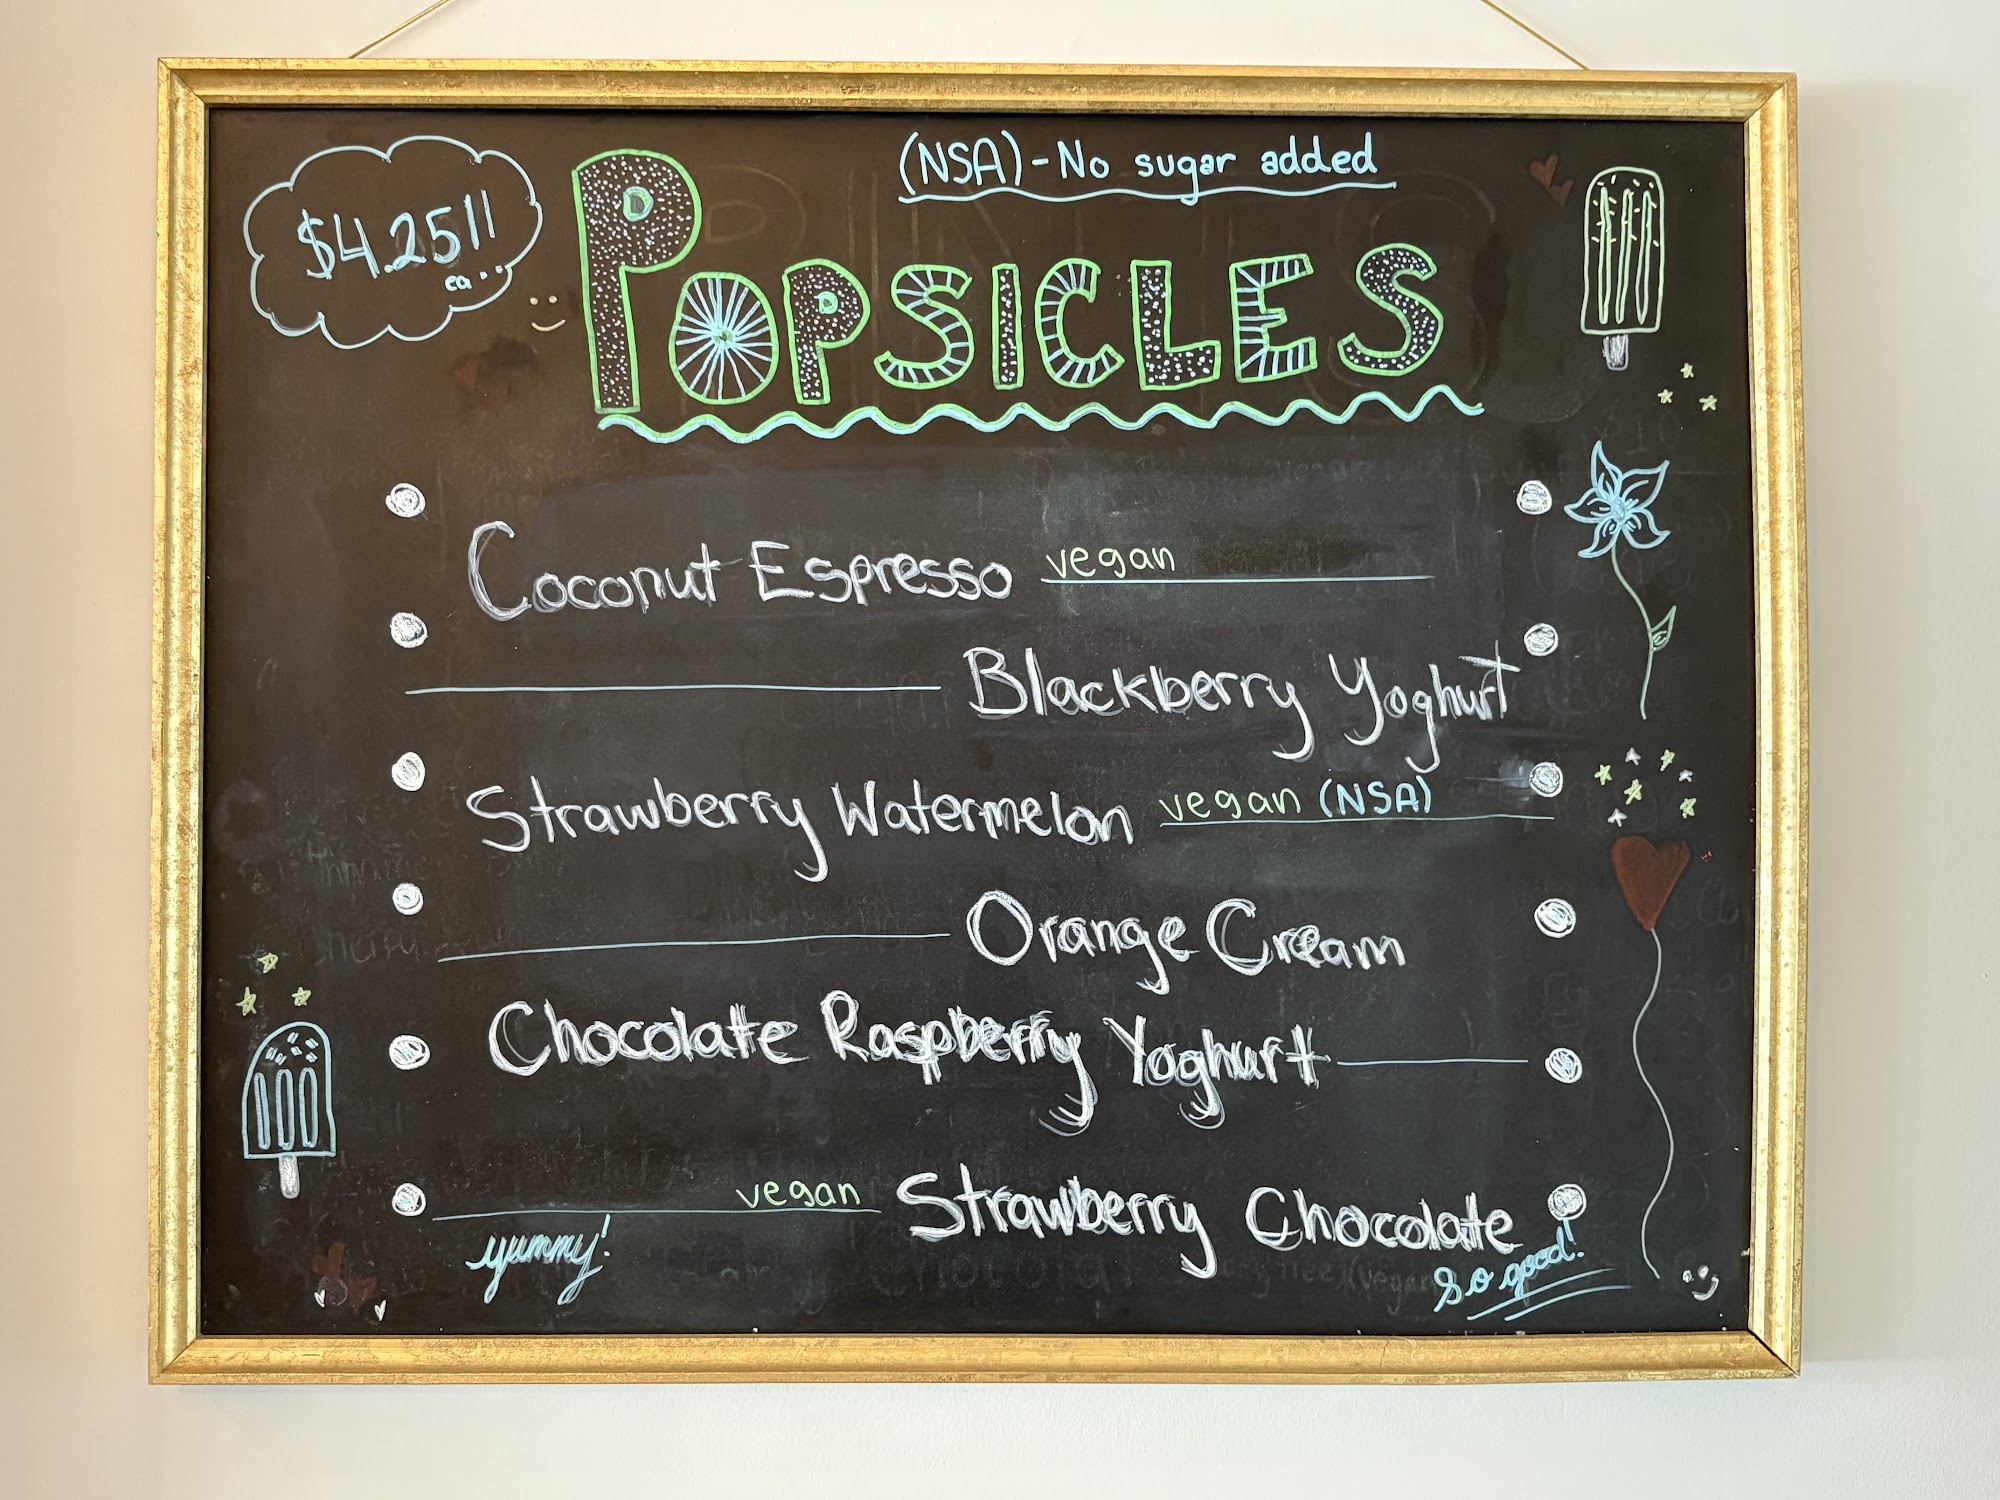 (NSA)-No sugar added
$4.25!!
ea..
POPSICLES
Coconut Espresso vegan
Blackberry Yoghurt
Strawberry Watermelon vegan (NSA)
Orange Cream
Chocolate Raspberry Yoghurt
vegan Strawberry Chocolate
yummy!
So good!